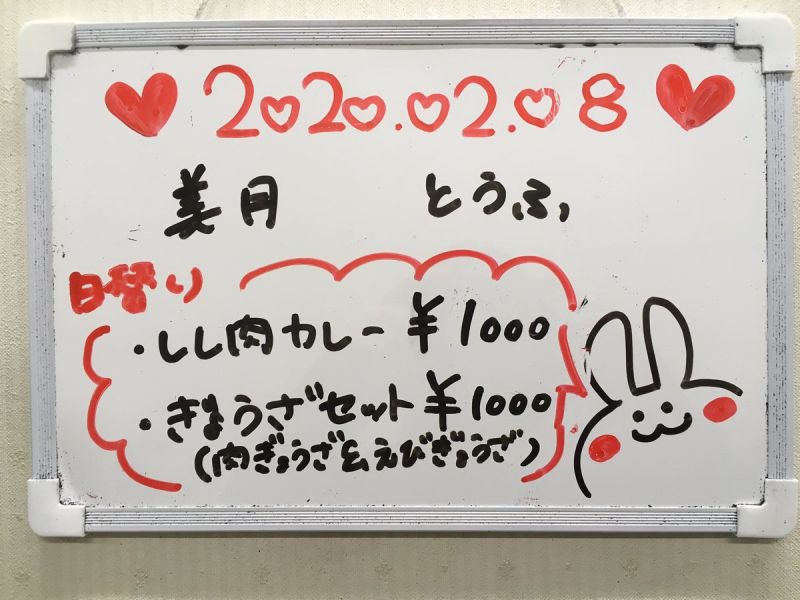 2020.02.08
美月 とうふ
日替り
・しし肉カレー ¥1000
・ぎょうざセット ¥1000
(肉ぎょうざ&えびぎょうざ)